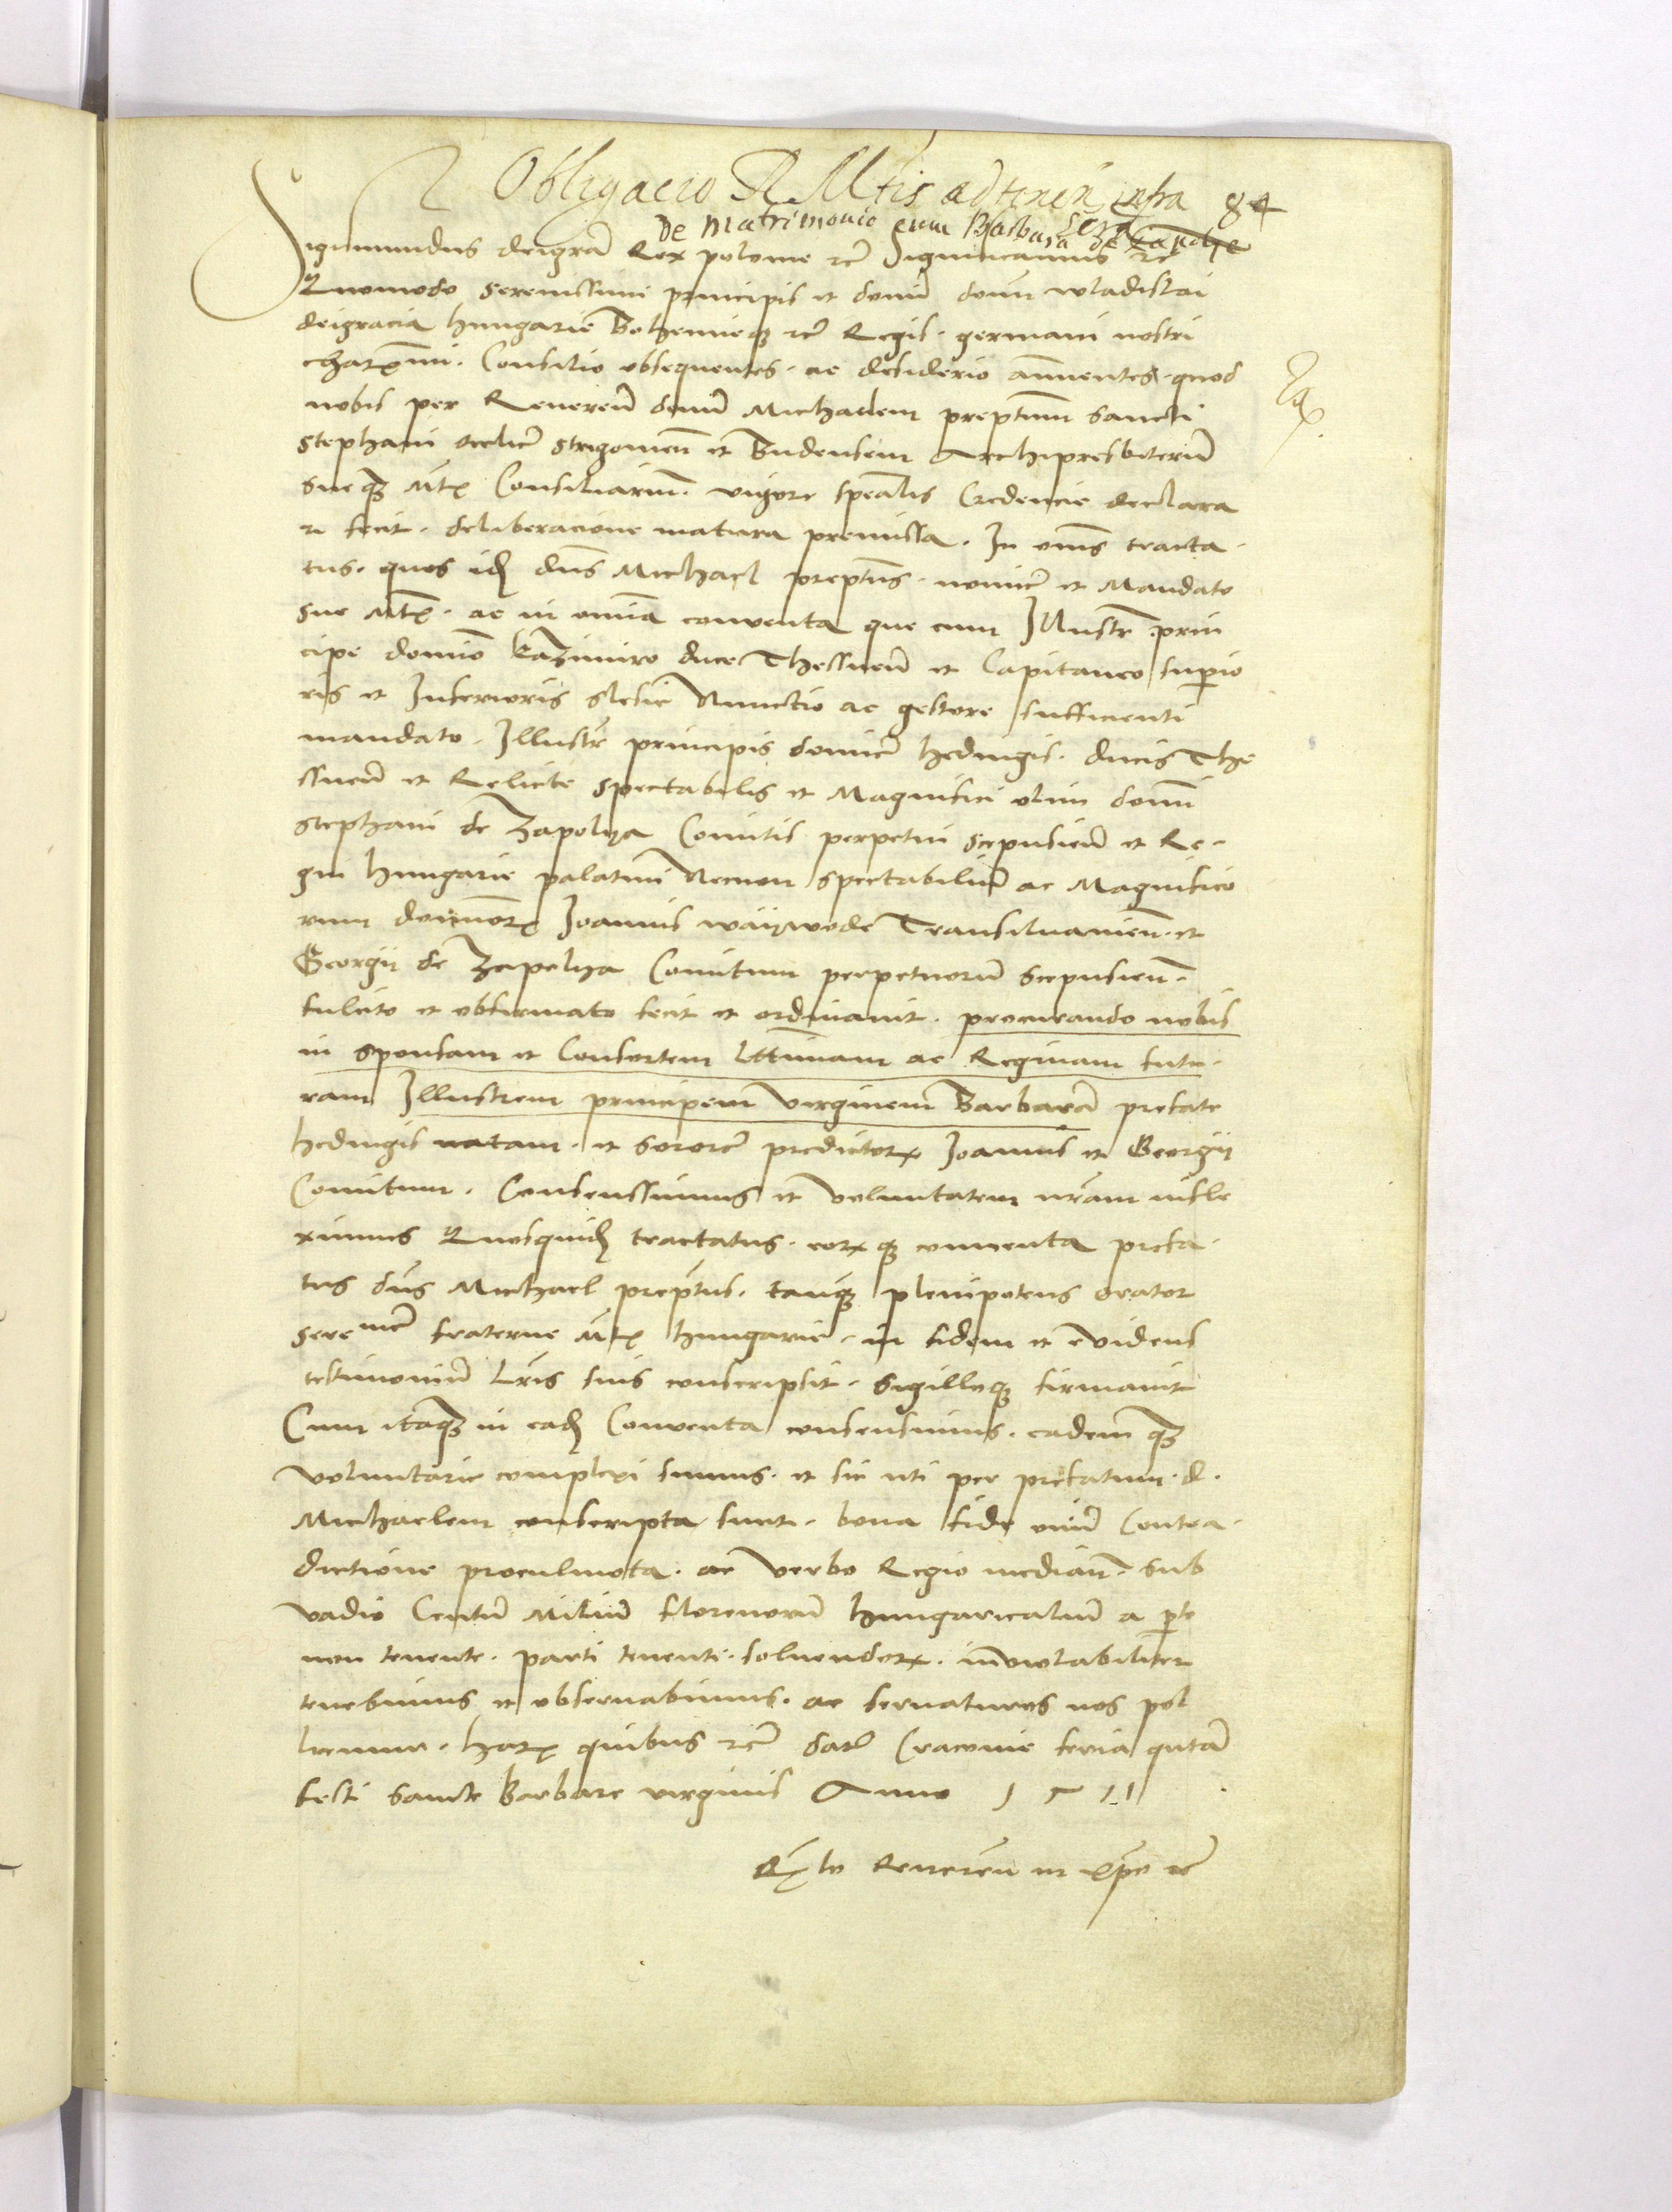 Obligacio R Mtis ad tenen infra 84
De matrimonio cum Barbara
Sigismundus deigrã Rex polonie rc̃ Significamus rc̃
Quomodo serenissimi principis et domini domini wladislai
deigracia hungarie Bohemieqꝫ rc̃ Regis. germani nostri
charꝫmi. Consilio obsequentes. ac desiderio annuentes. quod
nobis per Reverend̃ domin̄ Michaelem preptum̄ Sancti
Stephani Strigonien̄ et Budensem Archipresbiterum̄
sueqꝫ Mtꝫ Consiliarium. vigore spealis Credencie declara
ri fecit. deliberacione matura premissa. In omnes tracta-
tus. quos idꝫ dn̄s Michael preptus̄. nomine et Mandato
sue Mtꝫ. ac in omnia conventa que cum Illustr̄ prin
cipe domino Kazimiro duce Thessinen̄ et Capitaneo superio
ris et Inferioris Slesie Nunctio ac gestore sufficienti
mandato. Illustr̄ principis domine hedvigis. ducis The
ssinen̄ et Relicte Spectabilis et Magnifici olim domini
Stephani de Zapolya Comitis perpetui Scepusien̄ et Re-
gni hungarie palatini Necnon spectabilium̄ ac Magnifico
rum dominorꝫ Joannis waywode Transilvanien̄. et
Georgii de Zapolya Comitum perpetuorum̄ Scepusien̄.
fulcito et obfirmato fecit et ordinavit. procurando nobis
in Sponsam et Consortem Lttimam ac Reginam futu-
ram Illustrem principem virginem Barbaram̄ prefate
hedvigis natam. et Sororem̄ predictorꝫ Joannis et Georgii
Comitum. Consenssimus et voluntatem nr̃am infle
ximus Quosquidꝫ tractatus. eorꝫqꝫ conventa prefa-
tus dn̄s Michael preptus̄. tanqꝫ plenipotens orator
Serenme fraterne Mtꝫ hungarie. in fidem et evidens
testimonium̄ Lr̃is suis conscripsit. Sigilloqꝫ firmavit
Cum itaqꝫ in eadꝫ Conventa consensimus. eademqꝫ
voluntarie complexi sumus. et sic uti per prefatum. d.
Michaelem conscripta sunt. bona fide omni Contra-
dictione proculmota. ac verbo Regio median̄. Sub
vadio Centum̄ Milium̄ florenorum̄ hungaricalium̄ a pte
non tenente. parti tenenti. solvendorꝫ. inviolabiliter
tenebimus et observabimus. ac servaturos nos pol
licemur. harꝫ quibus rc̃ Datum̄ Cracovie feria
festi Sancte Barbare virginis Anno 1511
Reveren̄ in xp̄o rc̃